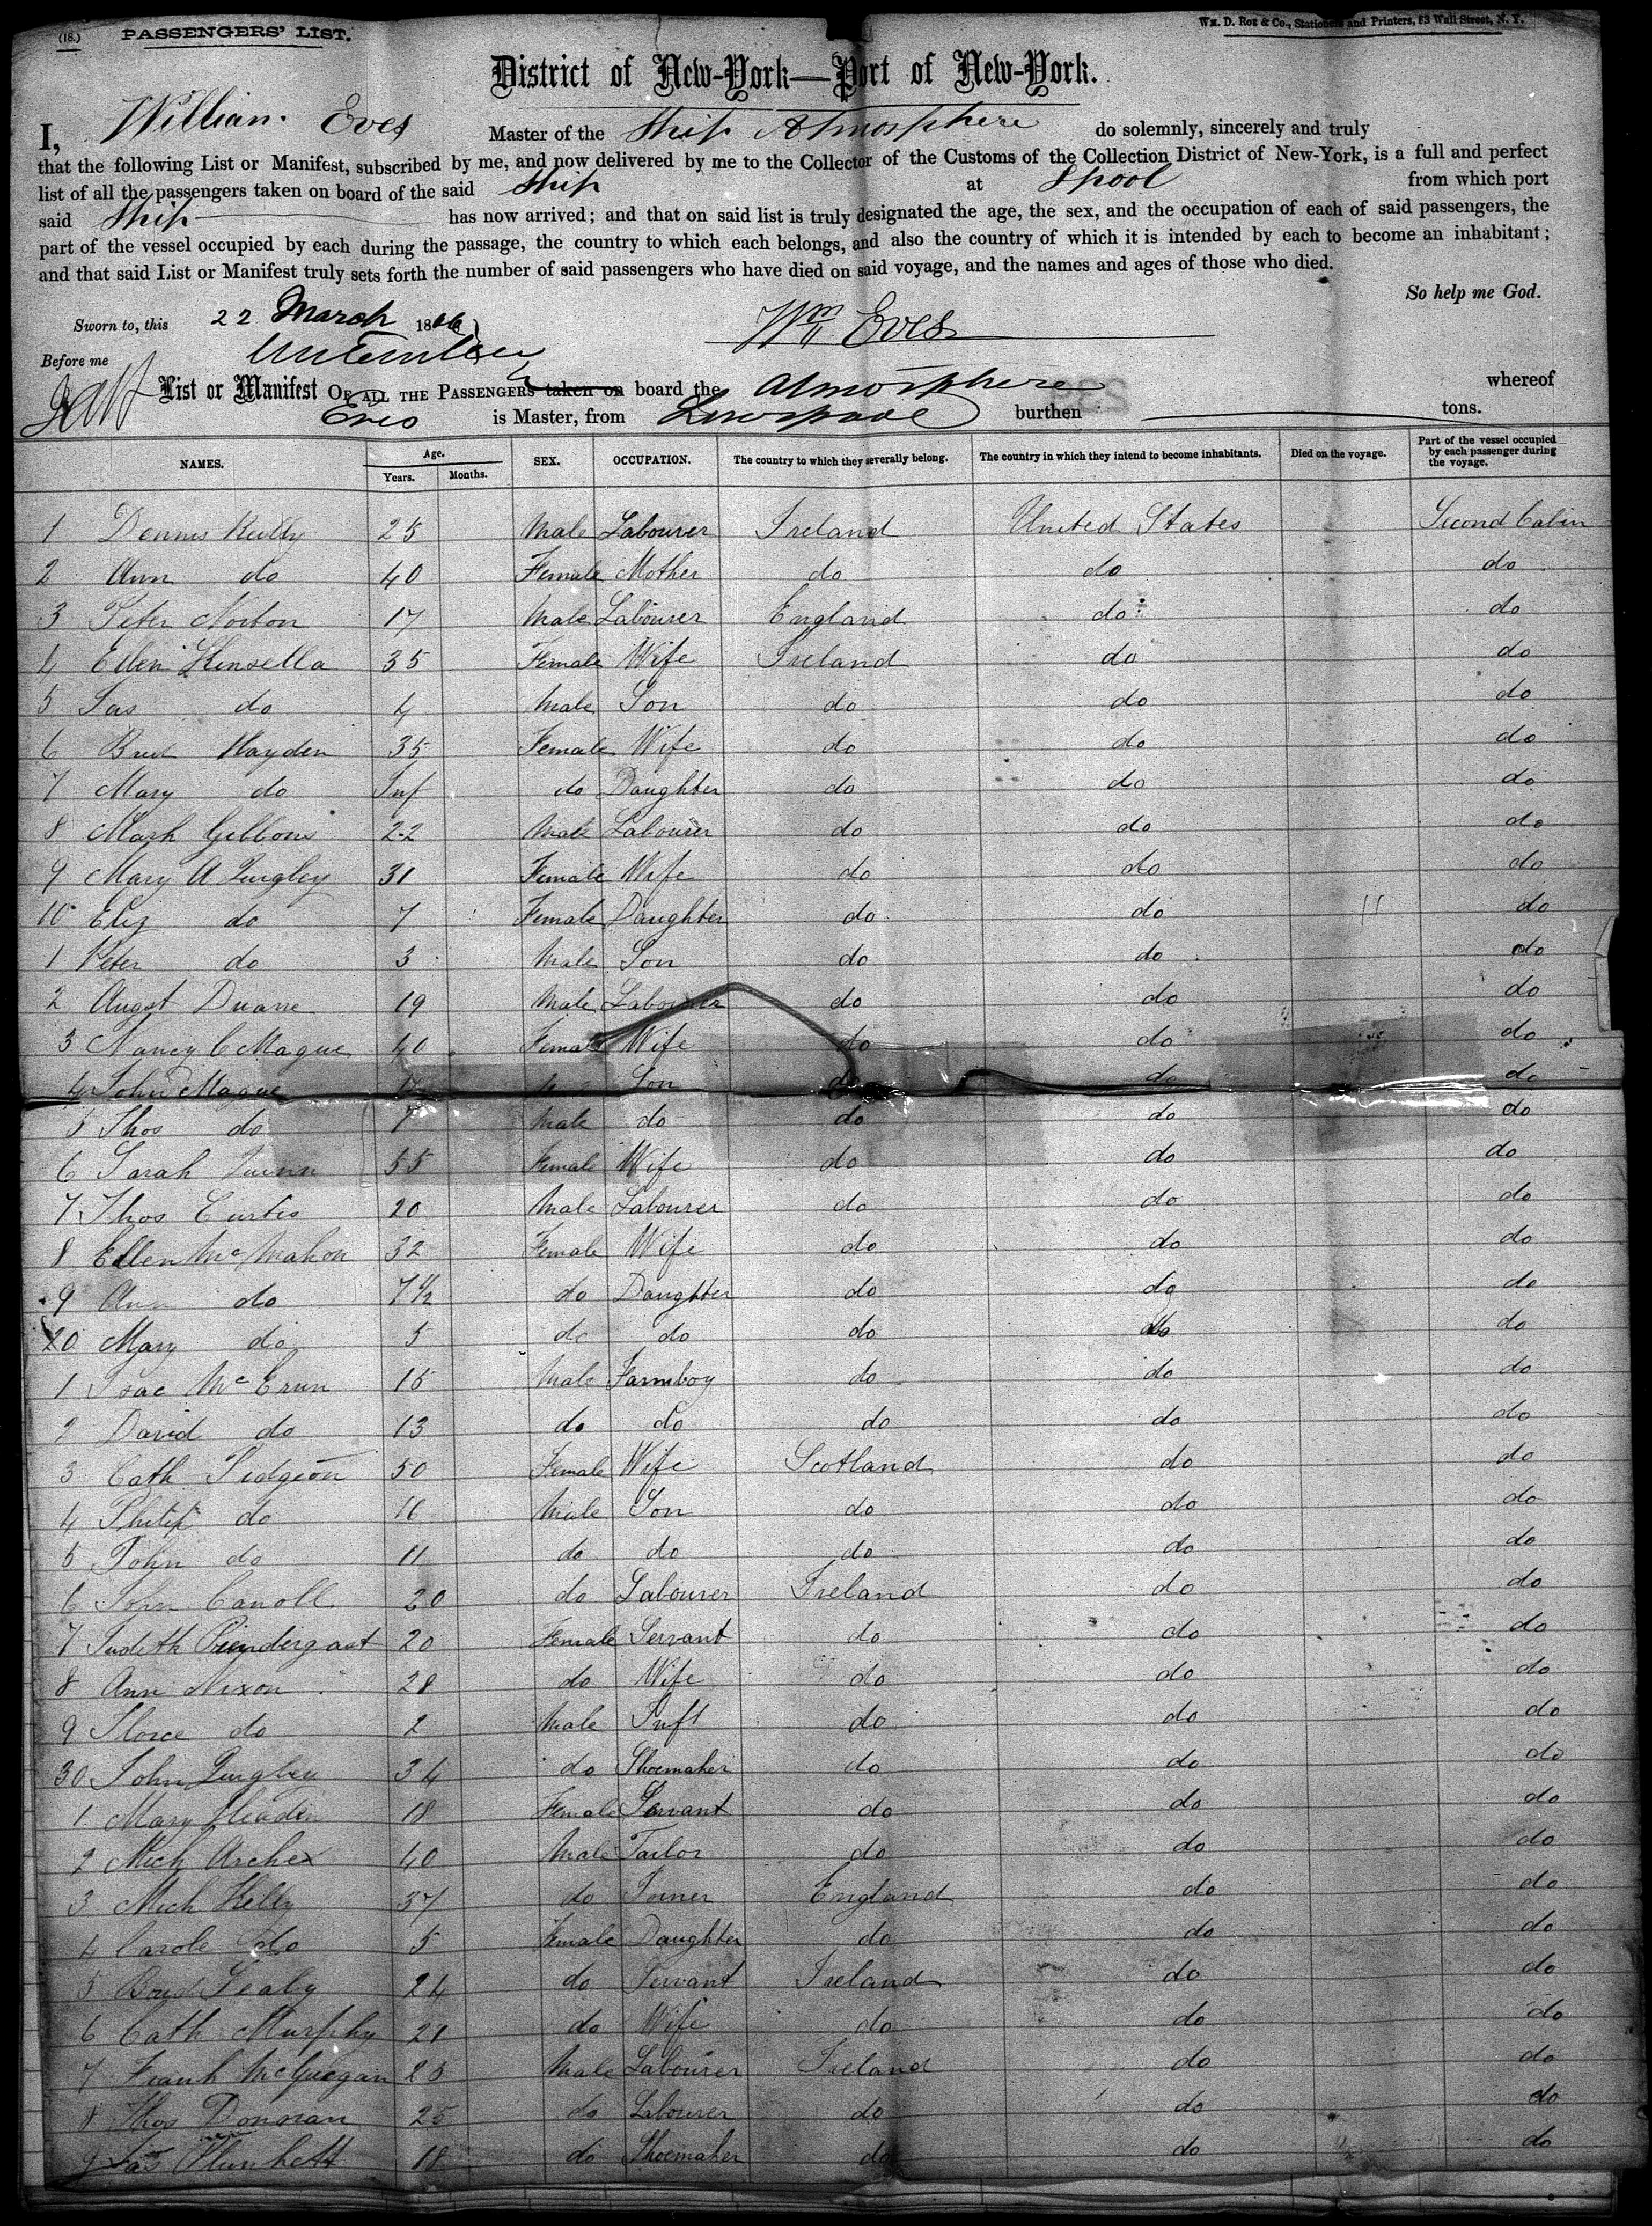 (18.) PASSENGERS' LIST.
Wm. D. Roe & Co., Stationers and Printers, 53 Wall Street, N. Y.
District of New-York—Port of New-York.
I, William Eves Master of the Ship Atmosphere do solemnly, sincerely and truly
that the following List or Manifest, subscribed by me, and now delivered by me to the Collector of the Customs of the Collection District of New-York, is a full and perfect
list of all the passengers taken on board of the said Ship at Lpool from which port
said Ship has now arrived; and that on said list is truly designated the age, the sex, and the occupation of each of said passengers, the
part of the vessel occupied by each during the passage, the country to which each belongs, and also the country of which it is intended by each to become an inhabitant;
and that said List or Manifest truly sets forth the number of said passengers who have died on said voyage, and the names and ages of those who died.
So help me God.
Sworn to, this 22 March 1866
Wm Eves
Before me
List or Manifest OF ALL THE PASSENGERS taken on board the Atmosphere whereof
Eves is Master, from Liverpool burthen tons.
NAMES. Age. Years. Months. SEX. OCCUPATION. The country to which they severally belong. The country in which they intend to become inhabitants. Died on the voyage. Part of the vessel occupied by each passenger during the voyage.
1 Dennis Reilly 25 Male Labourer Ireland United States Second Cabin
2 Ann do 40 Female Mother do do do
3 Peter Norton 17 Male Labourer England do do
4 Ellen Kinsella 35 Female Wife Ireland do do
5 Jas do 4 Male Son do do do
6 Brid Hayden 35 Female Wife do do do
7 Mary do Inf do Daughter do do do
8 Mark Gibbons 22 Male Labourer do do do
9 Mary A Quigley 31 Female Wife do do do
10 Eliz do 7 Female Daughter do do do
1 Peter do 3 Male Son do do do
2 Augst Duane 19 Male Labourer do do do
3 Nancy C Mague 40 Female Wife do do do
4 John Mague Son do do do
5 Thos do 7 Male do do do do
6 Sarah Quinn 55 Female Wife do do do
7 Thos Curtis 20 Male Labourer do do do
8 Ellen McMahon 32 Female Wife do do do
9 Ann do 7 1/2 do Daughter do do do
20 Mary do 5 do do do do do
1 Isac McErun 15 Male Farmboy do do do
2 David do 13 do do do do do
3 Cath Pidgeon 50 Female Wife Scotland do do
4 Philip do 16 Male Son do do do
5 John do 11 do do do do do
6 John Caroll 20 do Labourer Ireland do do
7 Judith Prendergast 20 Female Servant do do do
8 Ann Nixon 28 do Wife do do do
9 do 2 Male Inft do do do
30 John Quigley 34 do Shoemaker do do do
1 Mary Headin 18 Female Servant do do do
2 Mich Archer 40 Male Tailor do do do
3 Mich Kelly 37 do Joiner England do do
4 Carole do 5 Female Daughter do do do
5 Brid Fealy 24 do Servant Ireland do do
6 Cath Murphy 21 do Wife do do do
7 Frank McGuegan 25 Male Labourer Ireland do do
8 Thos Donovan 25 do Labourer do do do
9 Jas Plunkett 18 do Shoemaker do do do